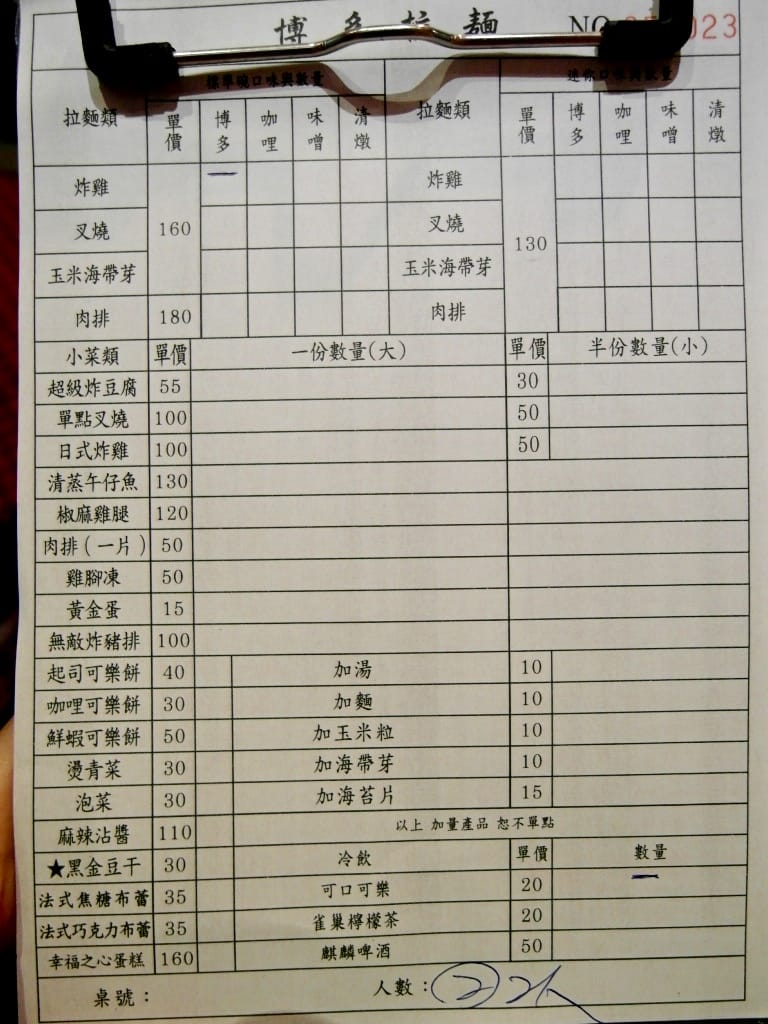 博多拉麵 NO 023
標準碗口味與數量 迷你口味與數量
拉麵類 單價 博多 咖哩 味噌 清燉 拉麵類 單價 博多 咖哩 味噌 清燉
炸雞 一 炸雞
叉燒 160 叉燒 130
玉米海帶芽 玉米海帶芽
肉排 180 肉排
小菜類 單價 一份數量(大) 單價 半份數量(小)
超級炸豆腐 55 30
單點叉燒 100 50
日式炸雞 100 50
清蒸午仔魚 130
椒麻雞腿 120
肉排(一片) 50
雞腳凍 50
黃金蛋 15
無敵炸豬排 100
起司可樂餅 40 加湯 10
咖哩可樂餅 30 加麵 10
鮮蝦可樂餅 50 加玉米粒 10
燙青菜 30 加海帶芽 10
泡菜 30 加海苔片 15
麻辣沾醬 110 以上 加量產品 恕不單點
★黑金豆干 30 冷飲 單價 數量
法式焦糖布蕾 35 可口可樂 20 一
法式巧克力布蕾 35 雀巢檸檬茶 20
幸福之心蛋糕 160 麒麟啤酒 50
桌號： 人數：2